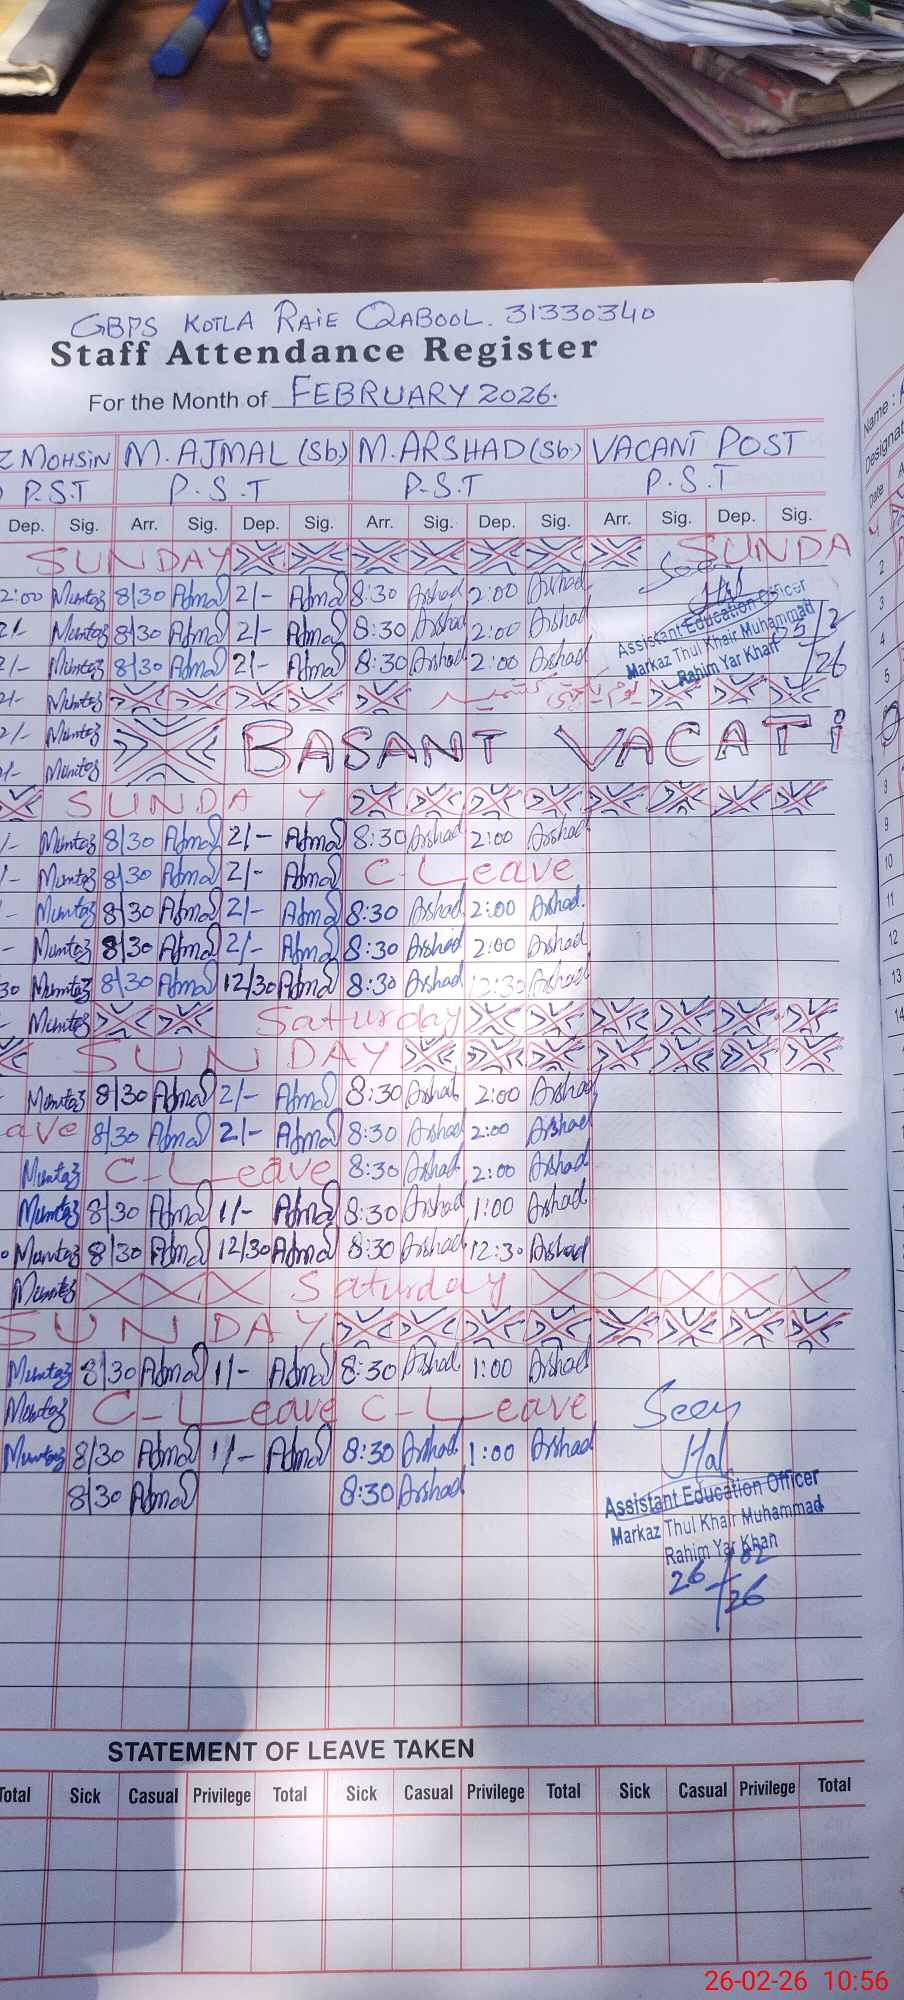 GBPS KOTLA RAIE QABOOL. 31330340
Staff Attendance Register
For the Month of FEBRUARY 2026.
Z MOHSIN M. AJMAL (Sb) M. ARSHAD (Sb) VACANT POST
P.S.T P.S.T P.S.T P.S.T
Dep. Sig. Arr. Sig. Dep. Sig. Arr. Sig. Dep. Sig. Arr. Sig. Dep. Sig.
SUNDAY SUNDA
2:00 Mumtaz 8/30 Ajmal 2/- Ajmal 8:30 Arshad 2:00 Arshad Seen
2/- Mumtaz 8/30 Ajmal 2/- Ajmal 8:30 Arshad 2:00 Arshad
2/- Mumtaz 8/30 Ajmal 2/- Ajmal 8:30 Arshad 2:00 Arshad
Assistant Education Officer
Markaz Thul Khair Muhammad
Rahim Yar Khan
2/- Mumtaz یوم یکجہتی کشمیر
2/- Mumtaz BASANT VACATi
Mumtaz
SUNDAY
/- Mumtaz 8/30 Ajmal 2/- Ajmal 8:30 Arshad 2:00 Arshad
/- Mumtaz 8/30 Ajmal 2/- Ajmal C-Leave
- Mumtaz 8/30 Ajmal 2/- Ajmal 8:30 Arshad 2:00 Arshad.
- Mumtaz 8/30 Ajmal 2/- Ajmal 8:30 Arshad 2:00 Arshad
30 Mumtaz 8/30 Ajmal 12/30 Ajmal 8:30 Arshad 12:30 Arshad
- Mumtaz Saturday
SUNDAY
- Mumtaz 8/30 Ajmal 2/- Ajmal 8:30 Arshad 2:00 Arshad
ave 8/30 Ajmal 2/- Ajmal 8:30 Arshad 2:00 Arshad
Mumtaz C-Leave 8:30 Arshad 2:00 Arshad
Mumtaz 8/30 Ajmal 1/- Ajmal 8:30 Arshad 1:00 Arshad
Mumtaz 8/30 Ajmal 12/30 Ajmal 8:30 Arshad 12:30 Arshad
Mumtaz Saturday
SUNDAY
Mumtaz 8/30 Ajmal 1/- Ajmal 8:30 Arshad 1:00 Arshad
Mumtaz C-Leave C-Leave Seen
Mumtaz 8/30 Ajmal 1/- Ajmal 8:30 Arshad 1:00 Arshad
8/30 Ajmal 8:30 Arshad
Assistant Education Officer
Markaz Thul Khair Muhammad
Rahim Yar Khan
26/02
/26
STATEMENT OF LEAVE TAKEN
Total Sick Casual Privilege Total Sick Casual Privilege Total Sick Casual Privilege Total
Name :
Date
2
3
4
5
8
9
10
11
12
13
14
26-02-26 10:56